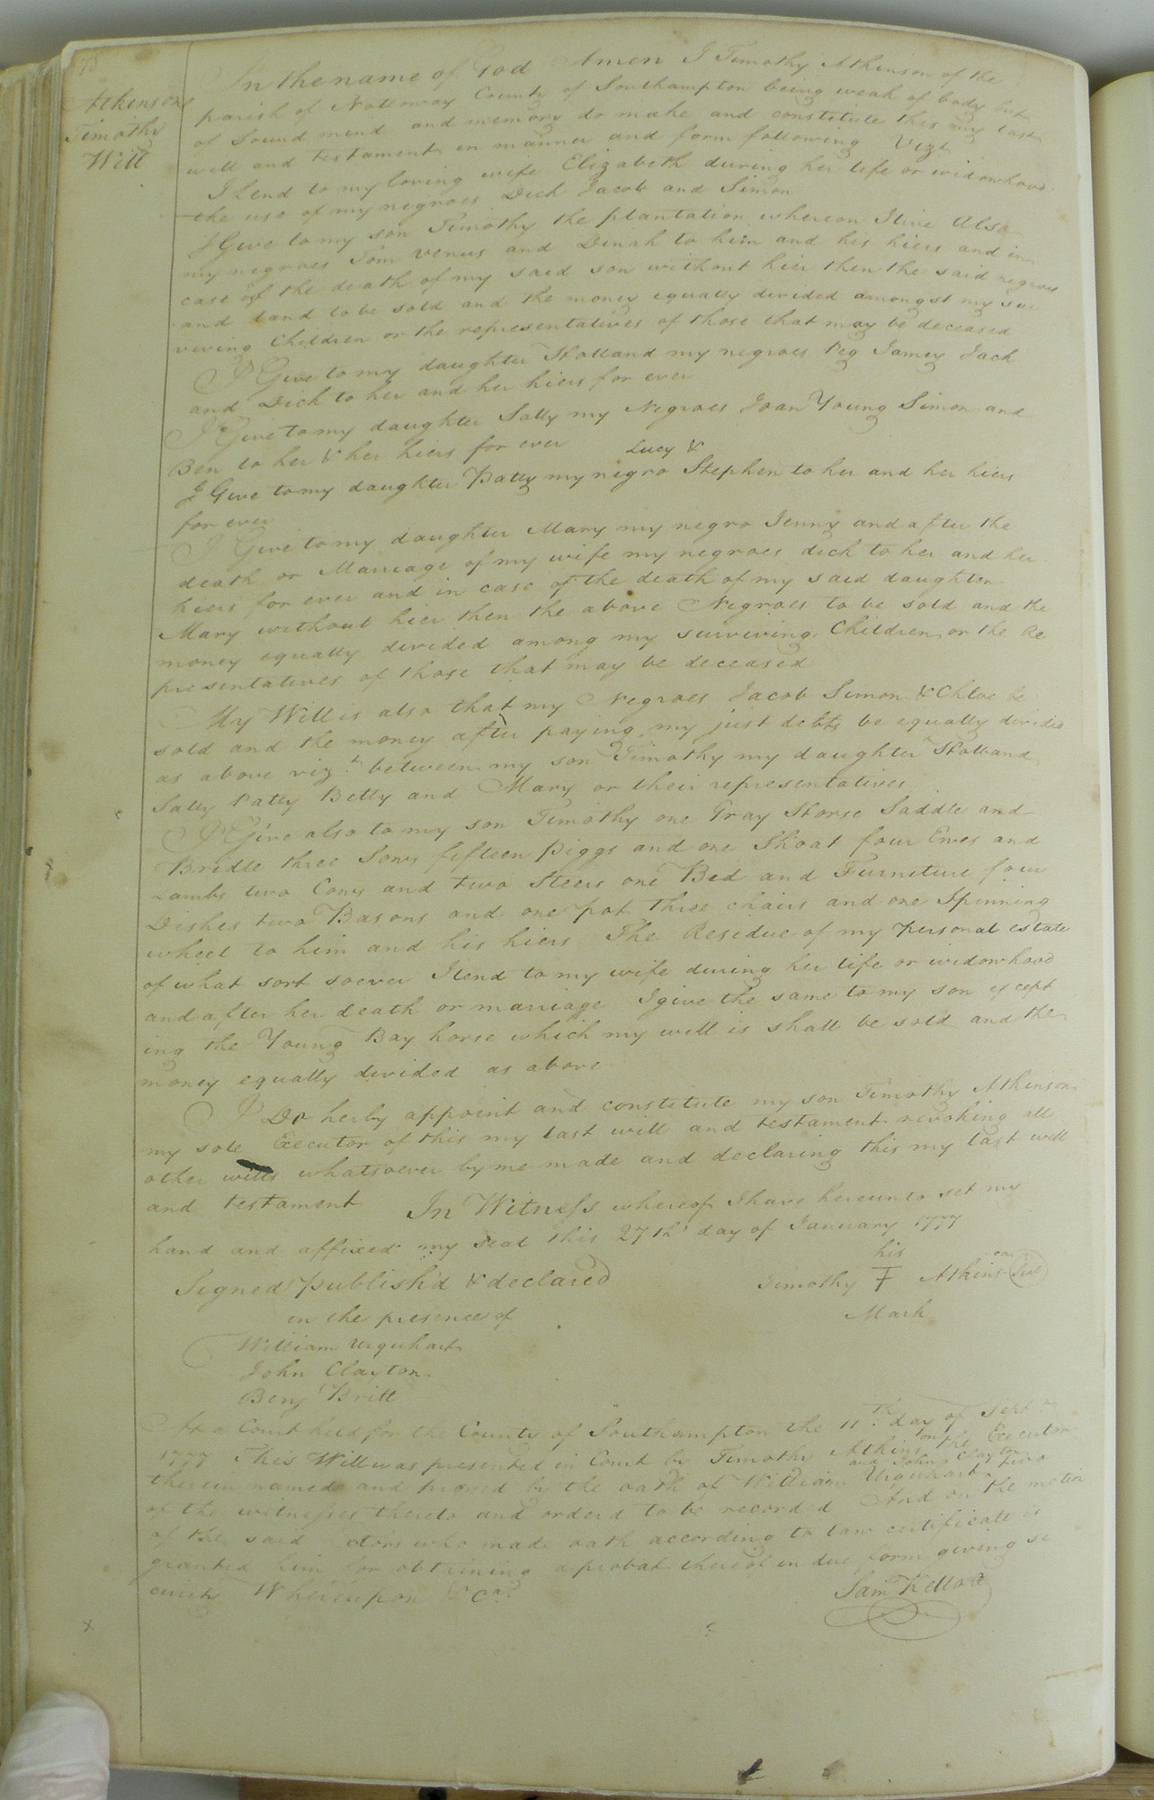 Atkinsons
Timothy
Will
In the name of God Amen I Timothy Atkinson of the
parish of Nottoway County of Southampton being weak of body but
of Sound mind and memory do make and constitute this my last
will and testament in manner and form following Vizt
I lend to my loving wife Elizabeth during her life or widowhood
the use of my negroes Dick Jacob and Simon
I Give to my son Timothy the plantation whereon I live Also
my negroes Tom Venus and Dinah to him and his hiers and in
case of the death of my said son without hier then the said negroes
and land to be sold and the money equally divided amongst my sur
viving Children or the representatives of those that may be deceased
I Give to my daughter Holland my negroes Peg Jamey Jack
and Dick to her and her hiers for ever
I Give to my daughter Sally my Negroes Joan Young Simon and
Ben to her & her hiers for ever
Lucy &
I Give to my daughter Patty my negro Stephen to her and her hiers
for ever
I Give to my daughter Mary my negro Jenny and after the
death or Marriage of my wife my negroes dick to her and her
hiers for ever and in case of the death of my said daughter
Mary without hier then the above Negroes to be sold and the
money equally divided among my surviving Children or the Re
presentatives of those that may be deceased
My Will is also that my Negroes Jacob Simon & Chloe be
sold and the money after paying my just debts be equally divided
as above vizt between my son Timothy my daughter Holland
Sally Patty Betty and Mary or their representatives
I Give also to my son Timothy one Gray Horse Saddle and
Bridle three Sows fifteen Piggs and one Shoat four Ewes and
Lambs two Cows and two Steers one Bed and Furniture four
Dishes two Basons and one pot three chairs and one Spinning
wheel to him and his hiers The Residue of my personal estate
of what sort soever I lend to my wife during her life or widowhood
and after her death or marriage I give the same to my son except
ing the Young Bay horse which my will is shall be sold and the
money equally divided as above
I Do herby appoint and constitute my son Timothy Atkinson
my sole Executor of this my last will and testament revoking all
other wills whatsoever by me made and declaring this my last will
and testament In Witness whereof I have hereunto set my
hand and affixed my seal this 27th day of January 1777
his
Signed publish'd & declared Timothy F Atkinson Seal
in the presence of Mark
William Urquhart
John Clayton
Benj Britt
At a Court held for the County of Southampton the 11th day of Sept
1777 This Will was presented in Court by Timothy Atkinson the Executor
and John Clayton two
therein named and proved by the oath of William Urquhart
of the witnesses thereto and orderd to be recorded And on the motion
of the said who made oath according to law certificate is
granted him for obtaining a probat thereof in due form giving se
curity Whereupon &ca
Saml Kello